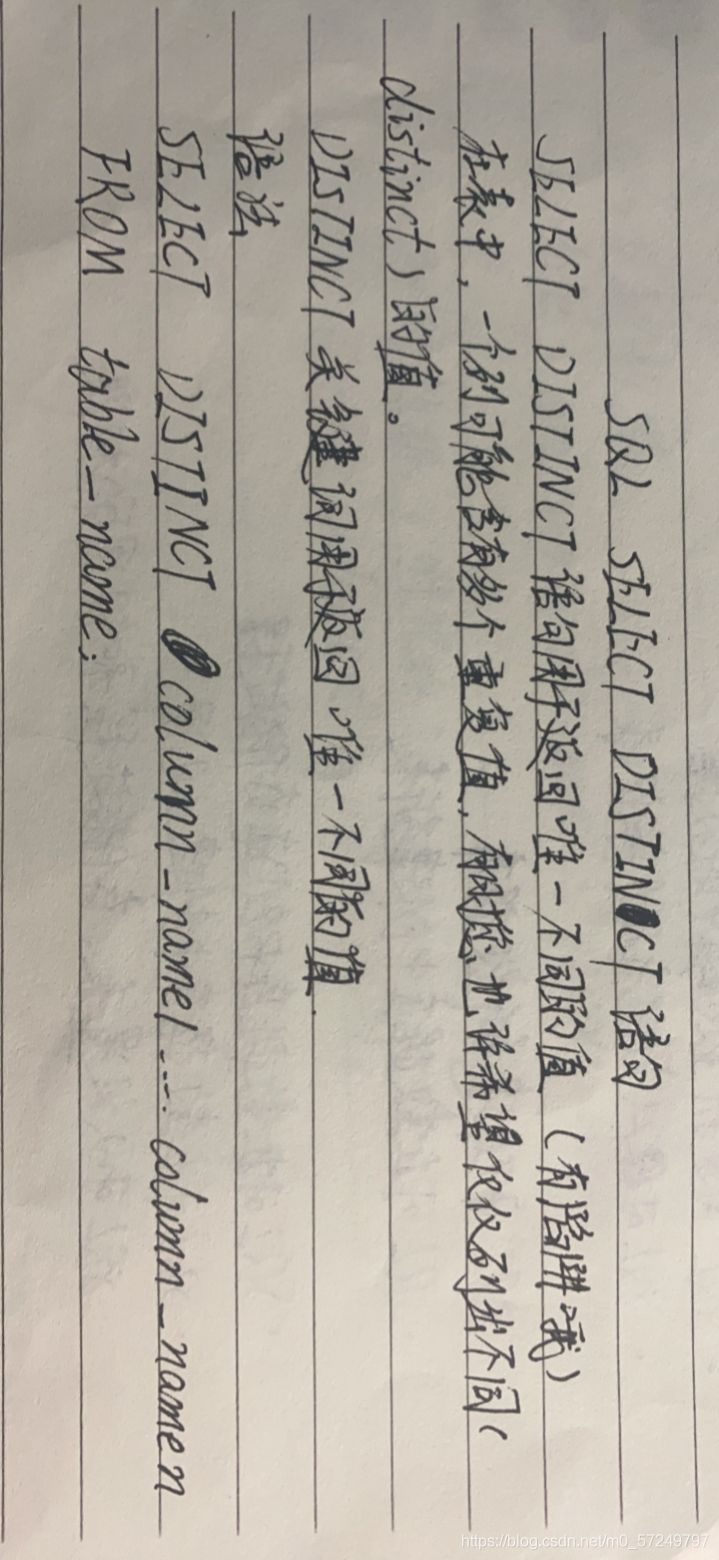 SQL SELECT DISTINCT 语句
SELECT DISTINCT 语句用于返回唯一不同的值 (有陷阱哦)
在表中，一个列可能含有多个重复值，有时您也许希望仅仅列出不同(
distinct) 的值。
DISTINCT 关键词用于返回唯一不同的值.
语法
SELECT DISTINCT column_name1 .... column_namen
FROM table_name;
https://blog.csdn.net/m0_57249797